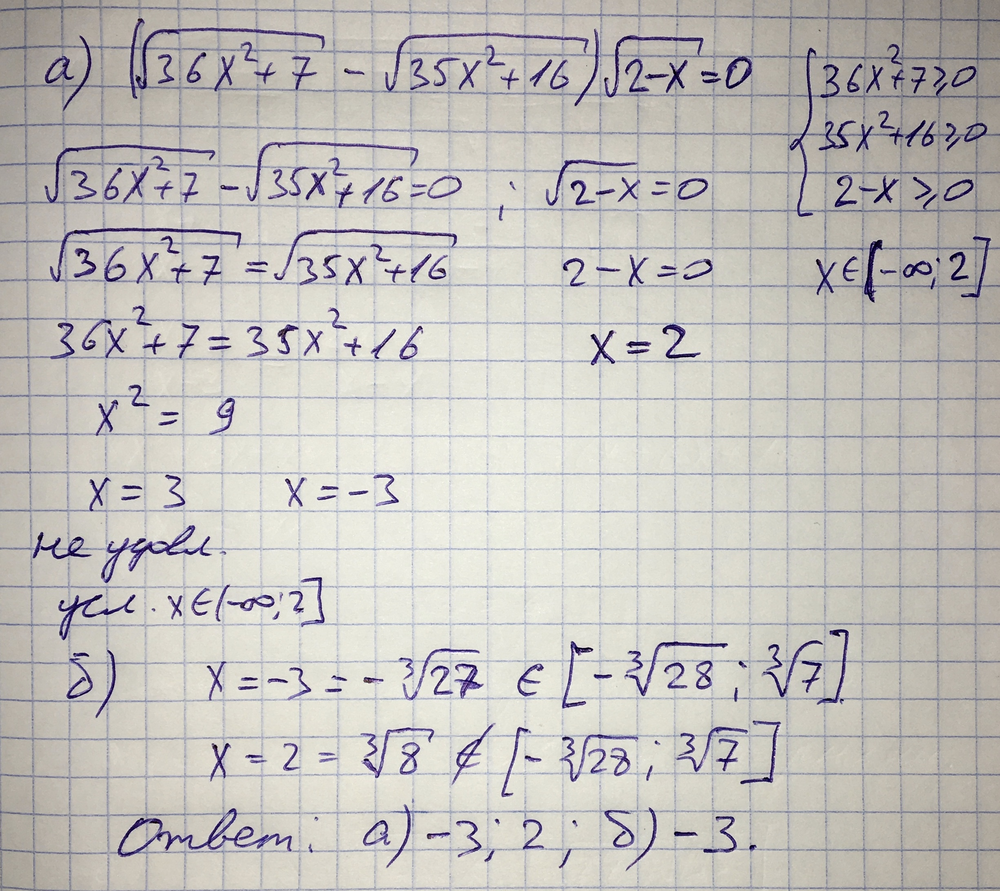 а) (√36x²+7 − √35x²+16)√2−x = 0
{ 36x²+7 ≥ 0
35x²+16 ≥ 0
2−x ≥ 0
√36x²+7 − √35x²+16 = 0 ; √2−x = 0
√36x²+7 = √35x²+16 2−x = 0 x∈(−∞; 2]
36x²+7 = 35x²+16 x = 2
x² = 9
x = 3 x = −3
не удовл.
усл. x∈(−∞; 2]
б) x = −3 = −∛27 ∈ [−∛28 ; ∛7]
x = 2 = ∛8 ∉ [−∛28 ; ∛7]
Ответ: а) −3; 2; б) −3.